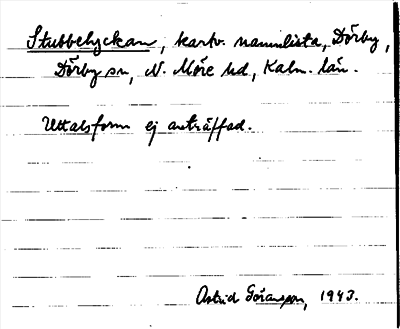 Stubbelyckan, kartv. namnlista, Dörby,
Dörby sn, N. Möre hd, Kalm. län.
Uttalsform ej anträffad.
Astrid Göransson, 1943.